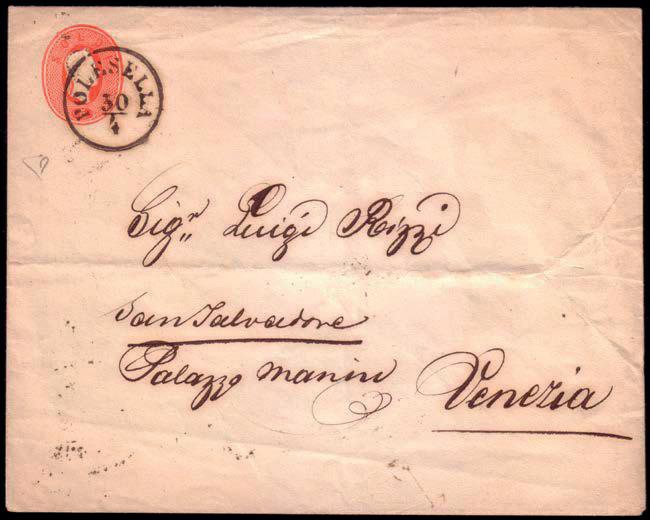 SOLDI
POLESELLA
30
4
Sigr Luigi Rizzi
San Salvadore
Palazzo Manin Venezia